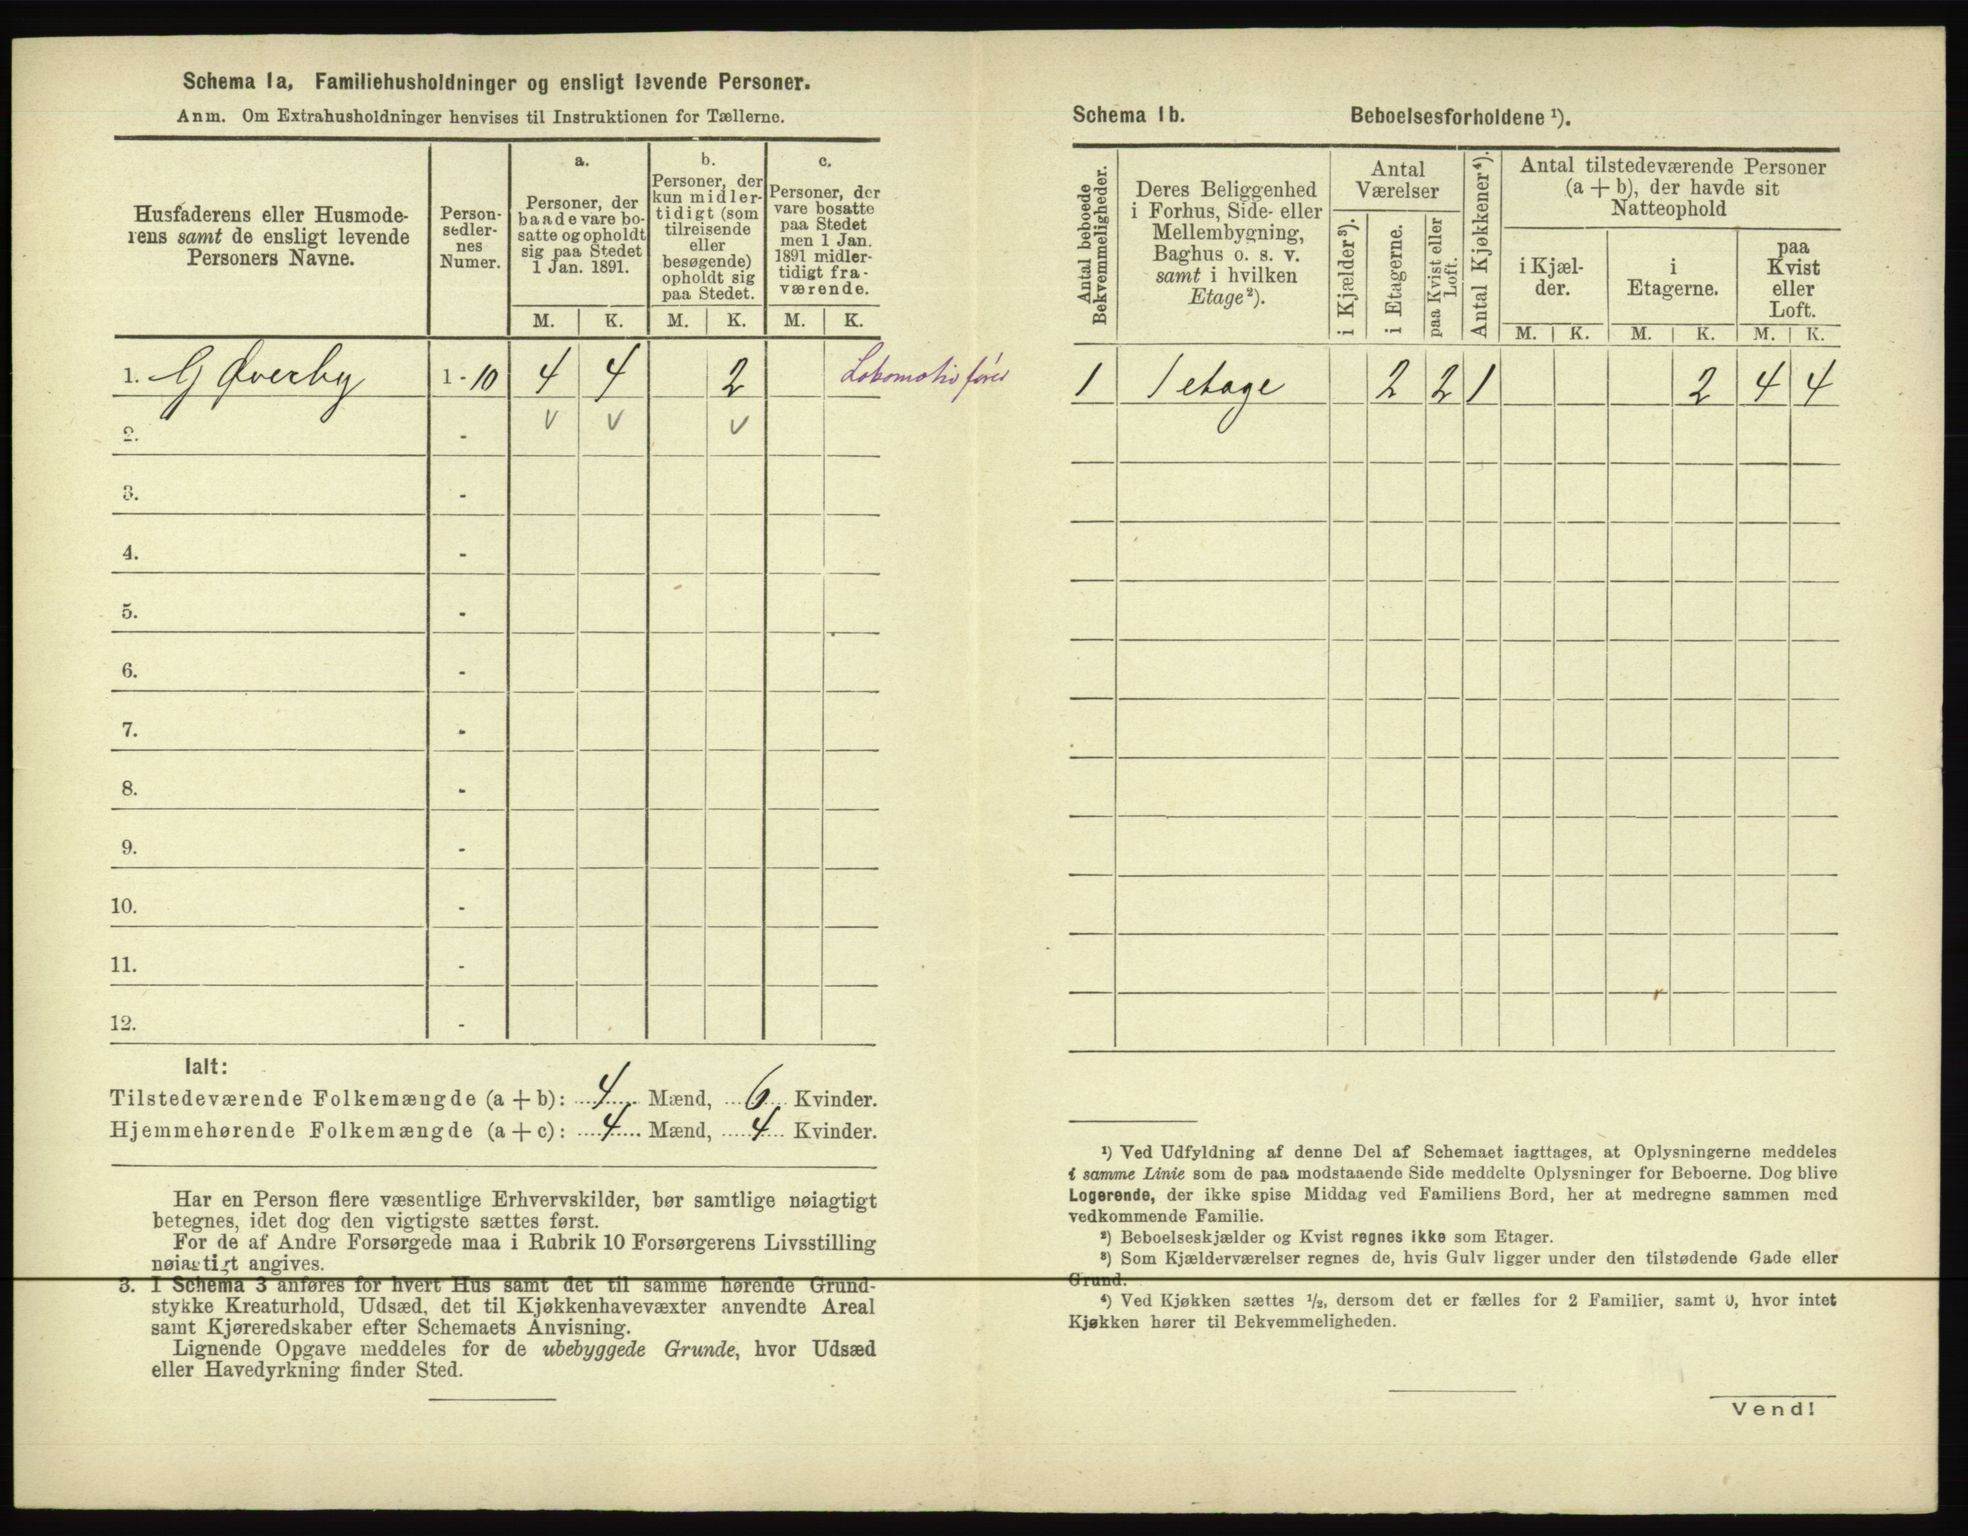 Schema 1a, Familiehusholdninger og ensligt levende Personer.
Anm. Om Extrahusholdninger henvises til Instruktionen for Tællerne.
Husfaderens eller Husmode-
rens samt de ensligt levende
Personers Navne.
Person-
sedler-
nes
Numer.
a.
Personer, der
baade vare bo-
satte og opholdt
sig paa Stedet
1 Jan. 1891.
b.
Personer, der
kun midler-
tidigt (som
tilreisende
eller
besøgende)
opholdt sig
paa Stedet.
c.
Personer, der
vare bosatte
paa Stedet
men 1 Jan.
1891 midler-
tidigt fra-
værende.
M. K. M. K. M. K.
1. G Øverby 1 - 10 4 4 2 Lokomotivfører
2. - v v v
3. -
4. -
5. -
6. -
7. -
8. -
9. -
10. -
11. -
12. -
Ialt:
Tilstedeværende Folkemængde (a + b): 4 Mænd, 6 Kvinder.
Hjemmehørende Folkemængde (a + c): 4 Mænd, 4 Kvinder.
Har en Person flere væsentlige Erhvervskilder, bør samtlige nøiagtigt
betegnes, idet dog den vigtigste sættes først.
For de af Andre Forsørgede maa i Rubrik 10 Forsørgerens Livsstilling
nøiagtigt angives.
3. I Schema 3 anføres for hvert Hus samt det til samme hørende Grund-
stykke Kreaturhold, Udsæd, det til Kjøkkenhavevæxter anvendte Areal
samt Kjøreredskaber efter Schemaets Anvisning.
Lignende Opgave meddeles for de ubebyggede Grunde, hvor Udsæd
eller Havedyrkning finder Sted.
Schema 1b. Beboelsesforholdene ¹).
Antal beboede
Bekvemmeligheder.
Deres Beliggenhed
i Forhus, Side- eller
Mellembygning,
Baghus o. s. v.
samt i hvilken
Etage ²).
Antal
Værelser
i Kjælder ³).
i Etagerne.
paa Kvist eller
Loft.
Antal Kjøkkener ⁴).
Antal tilstedeværende Personer
(a + b), der havde sit
Natteophold
i Kjæl-
der.
i
Etagerne.
paa
Kvist
eller
Loft.
M. K. M. K. M. K.
1 1 etage 2 2 1 2 4 4
¹) Ved Udfyldning af denne Del af Schemaet iagttages, at Oplysningerne meddeles
i samme Linie som de paa modstaaende Side meddelte Oplysninger for Beboerne. Dog blive
Logerende, der ikke spise Middag ved Familiens Bord, her at medregne sammen med
vedkommende Familie.
²) Beboelseskjælder og Kvist regnes ikke som Etager.
³) Som Kjælderværelser regnes de, hvis Gulv ligger under den tilstødende Gade eller
Grund.
⁴) Ved Kjøkken sættes ¹/₂, dersom det er fælles for 2 Familier, samt 0, hvor intet
Kjøkken hører til Bekvemmeligheden.
Vend!